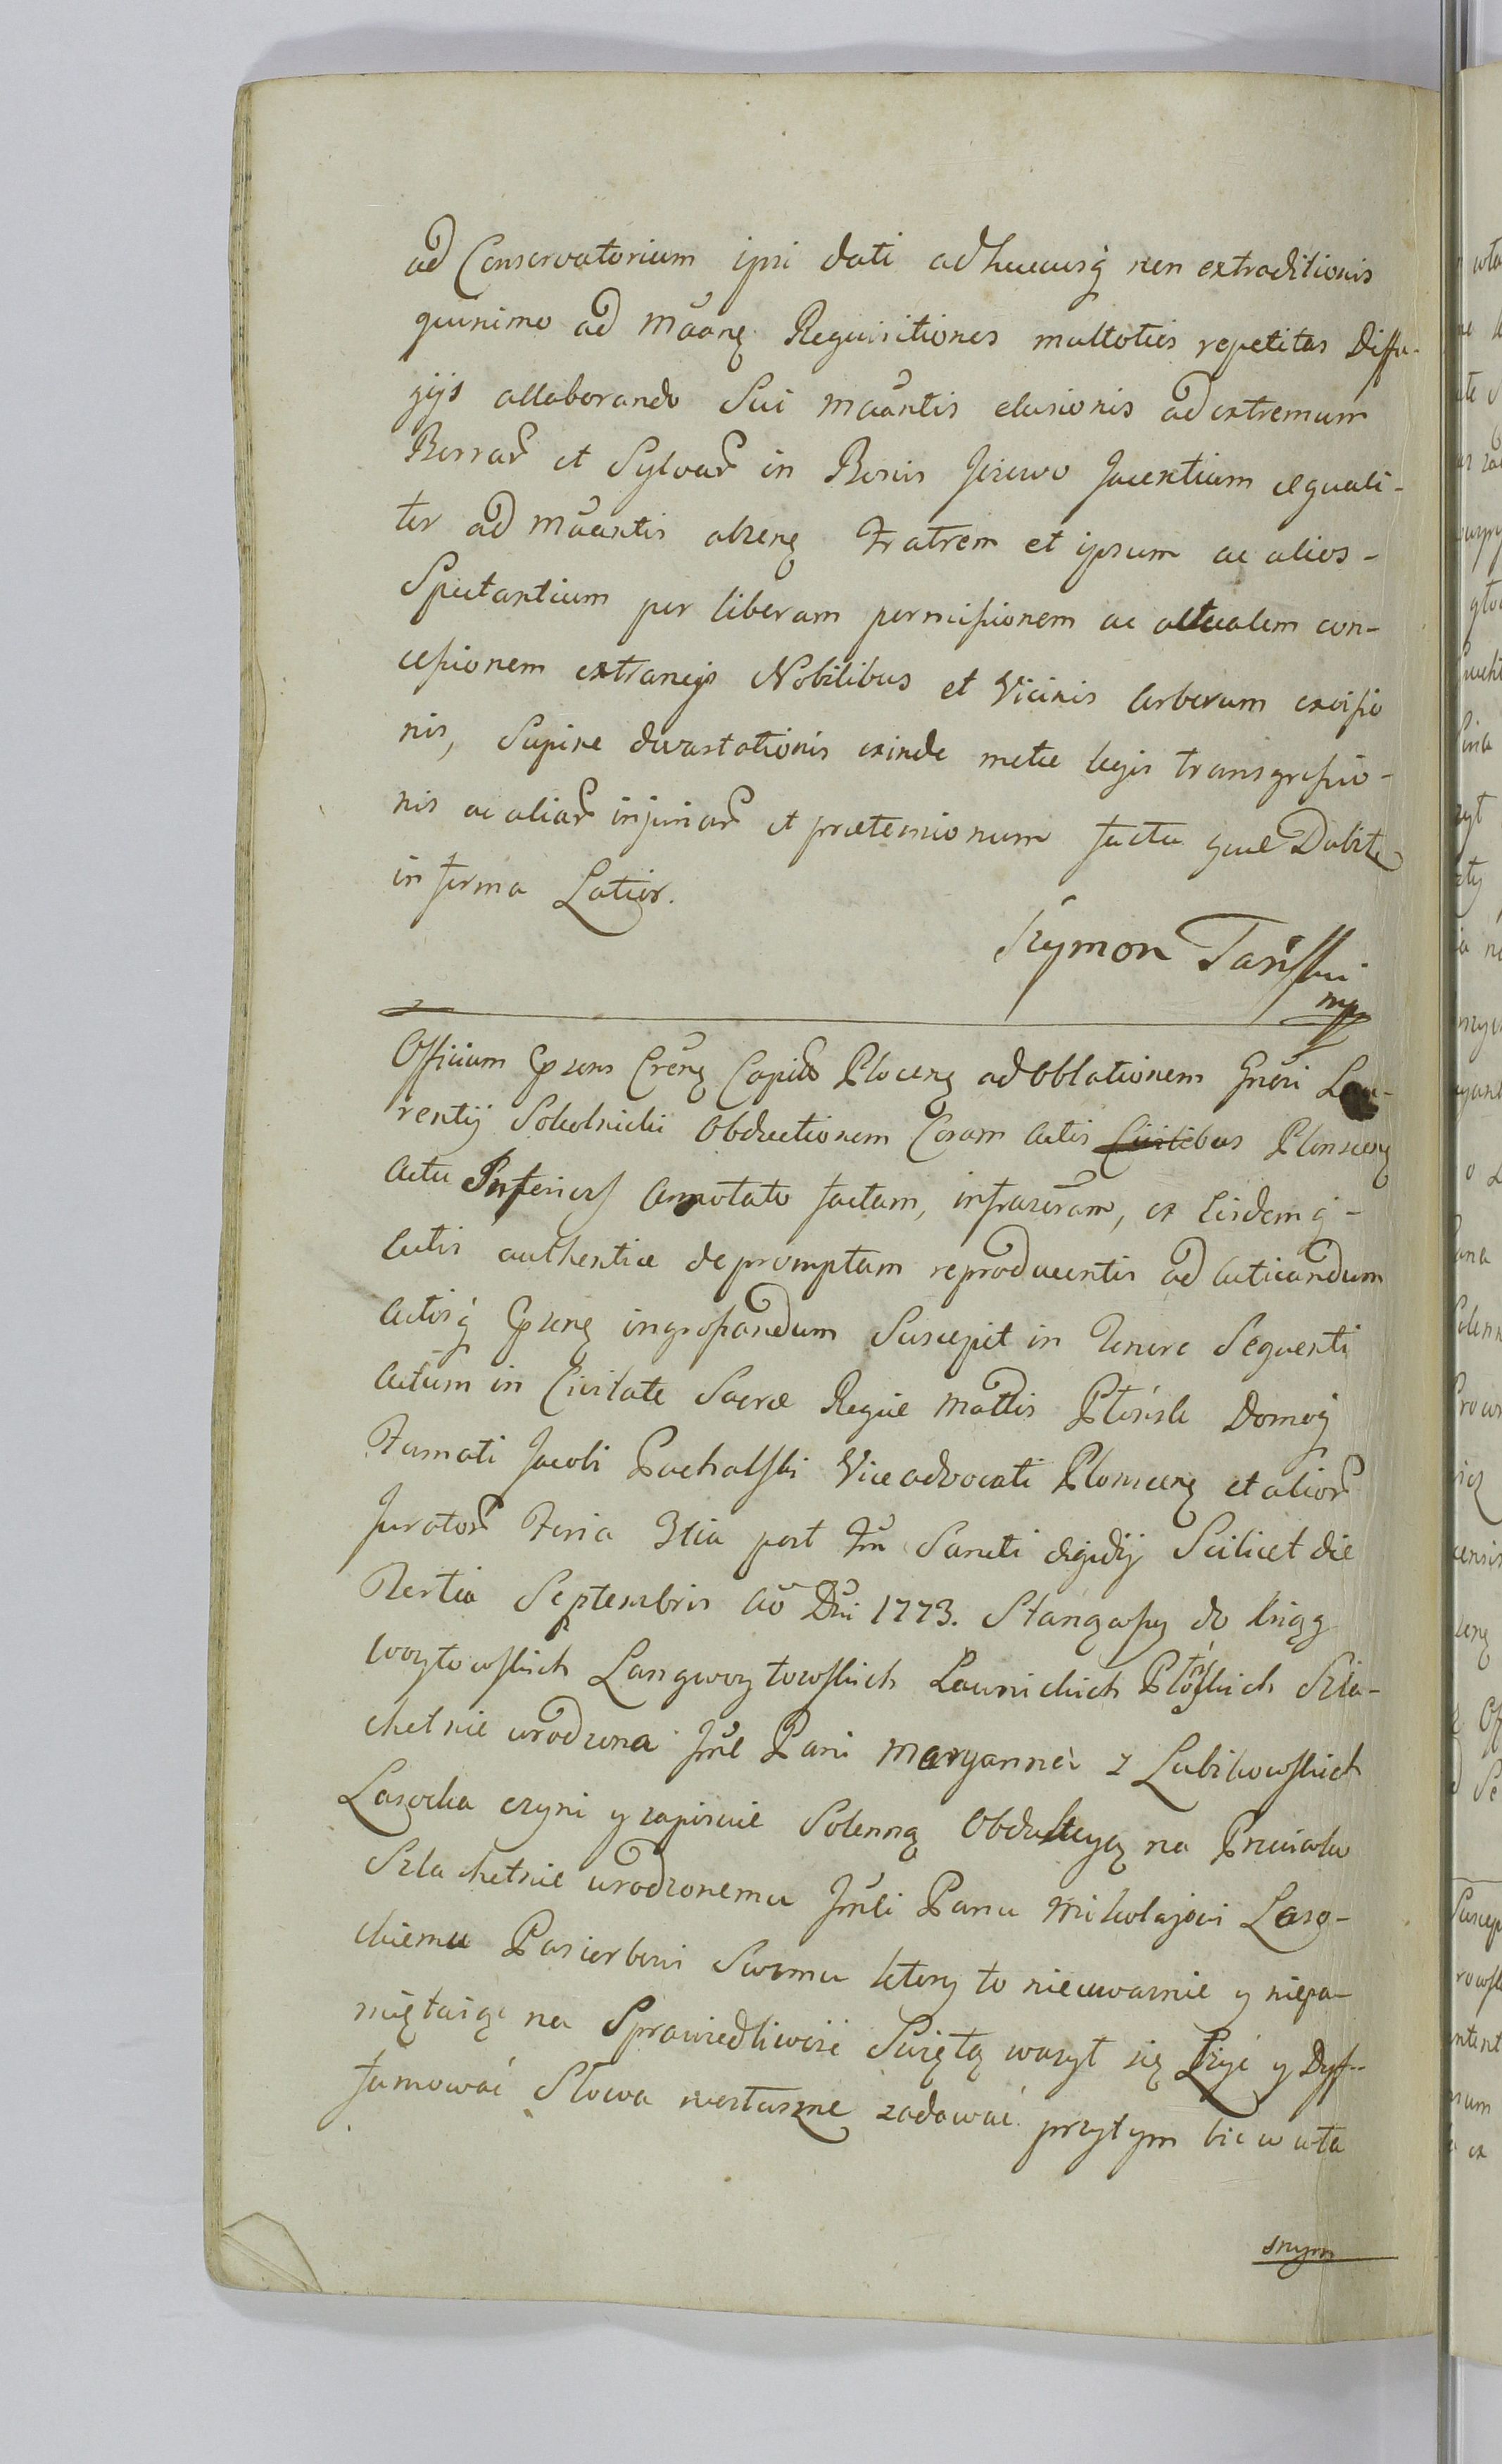 ad Conservatorium ipsi dati adhucusq non extraditionis
quinimo ad Mãang Requisitiones multoties repetitas Diffu-
gijs allaborando Sui Mãantis elusionis ad extremum
Borrar et Sylvar in Bonis Jeżewo Jacentium aequali-
ter ad Mãantis absenq Fratrem et ipsum ac alios-
Spectantium per liberam permissionem ac actualem con-
cessionem extraneis Nobilibus et Vicinis Arborum excisio
nis, Supine devastationis exinde metae legis transgressio-
nis ac aliar injuriar et praetensionum facta quae Dabit
in forma Latior.
Szymon Tański
mp
Officium Cprsens Crenq Capitle Plocenq ad Oblationem Gnosi Lau-
rentij Sokolnicki Obductionem Coram Actis Plonscenq
Actu Inferius Annotato factam, infrascram, ex Eisdemq-
Actis authentice depromptam reproducentis ad Acticandum
Actisq Cprsenq ingrossandum Suscepit in Tenore Sequenti
Actum in Civitate Sacrae Regiae Mattis Płońsk Domoq
Famati Jacobi Pachalski Viceadvocati Plonscenq et alior
Jurator Feria 3tia post Fm Sancti Aegidij Scilicet die
Tertia Septembris Aõ Dni 1773. Stanąwszy do ksiąg
Woytowskich Langwoytowskich Ławnickich Płońskich Szla-
chetnie urodzona Jmć Pani Maryanna z Lubikowskich
Lasocka czyni y zapisuie Solenną Obdukcyą na Przeciwko
Szlachetnie urodzonemu Jmći Panu Mikołajowi Laso-
ckiemu Pasierbowi Swemu ktory to nieuwarnie y niepa-
miętaiąc na Sprawiedliwość Swiętą ważył się Lżyć y Dyf-
famować Słowa nieztuszne zadawać przytym bić w wła
snym